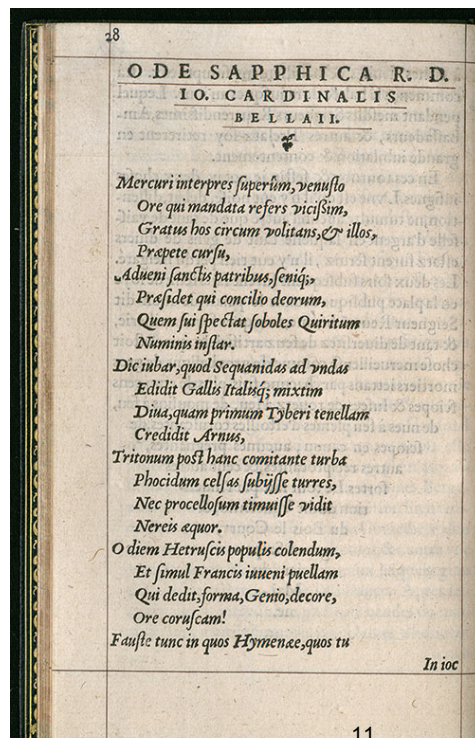 28
ODE SAPPHICA R. D.
IO. CARDINALIS
BELLAII.
Mercuri interpres ſuperûm, venuſto
Ore qui mandata refers viciſsim,
Gratus hos circum volitans, & illos,
Præpete curſu,
Adueni ſanctis patribus, ſeniq́;,
Præſidet qui concilio deorum,
Quem ſui ſpectat ſoboles Quiritum
Numinis inſtar.
Dic iubar, quod Sequanidas ad vndas
Edidit Gallis Italisq́; mixtim
Diua, quam primum Tyberi tenellam
Credidit Arnus,
Tritonum poſt hanc comitante turba
Phocidum celſas ſubijſſe turres,
Nec procelloſum timuiſſe vidit
Nereis æquor.
O diem Hetruſcis populis colendum,
Et ſimul Francis iuueni puellam
Qui dedit, forma, Genio, decore,
Ore coruſcam!
Fauſte tunc in quos Hymenæe, quos tu
In ioc
11